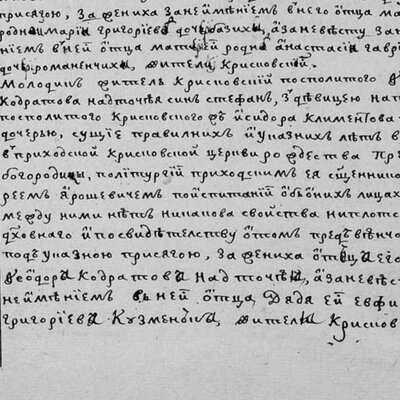 присягою, за жениха занеимѣниемъ внего отца ма
родна марїа григорїева дочь базиха, азаневѣсту за
нїемъ вней отца матерей родна анастасїа гаврї
дочь романенчиха, жители крисковскій.
Молодикъ житель крисковскій посполитого
Кодратова надточѣя синъ стефанъ, здѣвицею
посполитого крисковского исидора климентова
дочерью, сущїе правилнихъ иуказнихъ лѣтъ в
вприходской крисковской церкви рождества пре
богородици, политургїи приходскимъ ея сщенникo
реемъ ярошевичемъ поиспитанїи обоїоннихъ лицахъ
между ними нѣтъ никакова свойства ниплотс
дховнаго ипосвидѣтелству отомъ предъвѣнча
подъ указною присягою, зажениха отецъ его
Феодоръ Кодратовъ Надточѣй, азаневѣс
неимѣнїемъ вней отца, дядя ей евфи
григорїевъ Кузменко, жители крисков